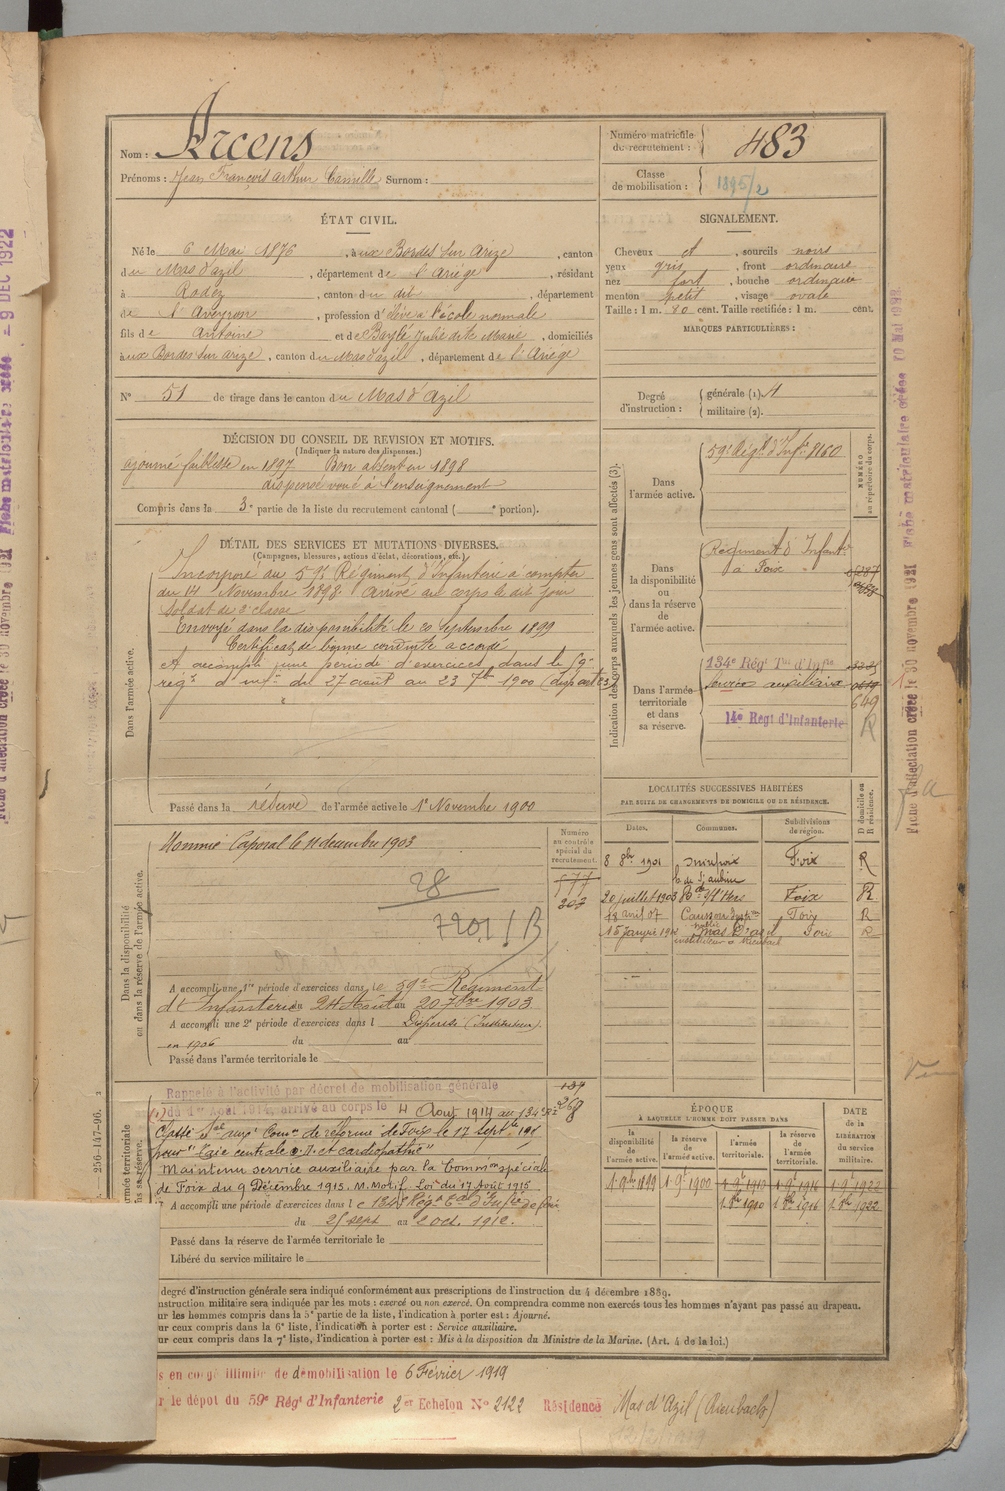 Nom : Arcens
Prénoms : Jean François Arthur Camille Surnom :
Numéro matricule du recrutement : 483
Classe de mobilisation : 1895/2
ÉTAT CIVIL.
Né le 6 Mai 1876, à aux Bordes sur Arize, canton
du Mas d'azil, département de l'Ariège, résidant
à Rodez, canton du dit, département
de l'Aveyron, profession d'élève à l'école normale
fils de Antoine et de Baylé Julie dite Marie, domiciliés
à aux Bordes sur arize, canton du Mas d'azil, département de l'Ariège
N° 51 de tirage dans le canton du Mas d'Azil
SIGNALEMENT.
Cheveux et, sourcils noirs
yeux gris, front ordinaire
nez fort, bouche ordinaire
menton petit, visage ovale
Taille : 1 m. 70 cent. Taille rectifiée : 1 m. cent.
MARQUES PARTICULIÈRES :
Degré d'instruction : générale (1).
militaire (2).
DÉCISION DU CONSEIL DE REVISION ET MOTIFS.
(Indiquer la nature des dispenses.)
ajourné faiblesse en 1897 Bon absent en 1898
dispensé voué à l'enseignement
Compris dans la 3e partie de la liste du recrutement cantonal ( e portion).
DÉTAIL DES SERVICES ET MUTATIONS DIVERSES.
(Campagnes, blessures, actions d'éclat, décorations, etc.)
Dans l'armée active.
Incorporé au 59e Régiment d'Infanterie à compter
du 14 Novembre 1898 Arrivé au corps le dit jour
Soldat de 2e classe
Envoyé dans la disponibilité le 20 Septembre 1899
Certificat de bonne conduite accordé
A accompli une période d'exercices dans le 59e
régt d'infie du 27 août au 23 7bre 1900
Passé dans la réserve de l'armée active le 1er Novembre 1900
Indication des corps auxquels les jeunes gens sont affectés (3).
NUMÉRO au répertoire du corps.
Dans l'armée active.
59e Régt d'Infie 8160
Dans la disponibilité ou dans la réserve de l'armée active.
Régiment d'Infanterie
à Foix
Dans l'armée territoriale et dans sa réserve.
134e Régt Tal d'Infie
Service auxiliaire
649
14e Régt d'Infanterie R
LOCALITÉS SUCCESSIVES HABITÉES
PAR SUITE DE CHANGEMENTS DE DOMICILE OU DE RÉSIDENCE.
Dates. Communes. Subdivisions de région. D domicile ou R résidence.
8 8bre 1901 Mirepoix Foix R
20 juillet 1903 Foix R
18 avril 07 Caussou Foix R
Mas d'azil Foix R
Dans la disponibilité ou dans la réserve de l'armée active.
Numéro au contrôle spécial du recrutement.
577
203
Nommé Caporal le 11 décembre 1903
28
7201 / B
A accompli une 1re période d'exercices dans le 59e Régiment
d'Infanterie du 24 Août au 20 7bre 1903
A accompli une 2e période d'exercices dans l Dispensé (Instituteur)
en 1906 du au
Passé dans l'armée territoriale le
256-147-96.
Rappelé à l'activité par décret de mobilisation générale
du 1er Août 1914, arrivé au corps le 4 Août 1914 au 134e
268
Classé Sce auxre Comon de réforme de Foix le 17 septbre
Maintenu service auxiliaire par la Common spéciale
de Foix du 9 Décembre 1915. M. Motif. Loi du 17 Août 1915
A accompli une période d'exercices dans l
du 25 sept au 2 oct. 1912.
Passé dans la réserve de l'armée territoriale le
Libéré du service militaire le
ÉPOQUE
À LAQUELLE L'HOMME DOIT PASSER DANS
la disponibilité de l'armée active. la réserve de l'armée active. l'armée territoriale. la réserve de l'armée territoriale.
DATE de la LIBÉRATION du service militaire.
1 9bre 1899 1 9e 1900 1 9e 1910 1 9e 1916 1 9e 1922
1 8bre 1910 1 8bre 1916 1 8bre 1922
degré d'instruction générale sera indiqué conformément aux prescriptions de l'instruction du 4 décembre 1889.
nstruction militaire sera indiquée par les mots : exercé ou non exercé. On comprendra comme non exercés tous les hommes n'ayant pas passé au drapeau.
ur les hommes compris dans la 5e partie de la liste, l'indication à porter est : Ajourné.
ur ceux compris dans la 6e liste, l'indication à porter est : Service auxiliaire.
ur ceux compris dans la 7e liste, l'indication à porter est : Mis à la disposition du Ministre de la Marine. (Art. 4 de la loi.)
s en congé illimité de démobilisation le 6 Février 1919
r le dépôt du 59e Régt d'Infanterie 2er Echelon No 2122 Résidence Mas d'Azil (Rieubach)
Fiche matriculaire créée le 20 Mai 1938
Fiche d'affectation créée le 30 novembre 1931
Fiche matriculaire créée - 9 DEC 1922